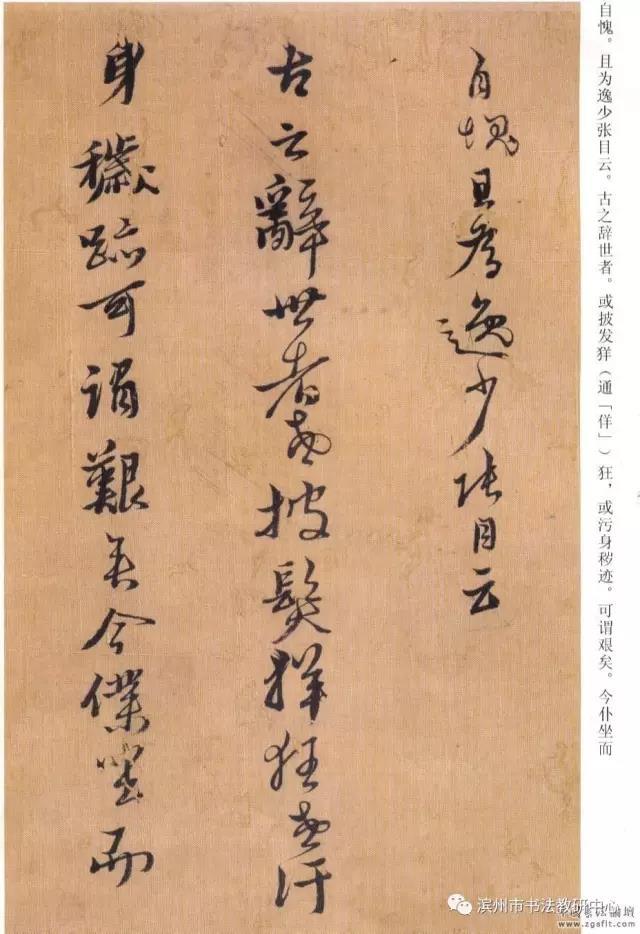 自愧。且为逸少张目云。古之辞世者。或披发佯（通「佯」）狂，或污身秽迹。可谓艰矣。今仆坐而
自愧且為逸少張目云
古云辭世者或披髮佯狂或污
身穢跡可謂艱矣今僕坐而
滨州市书法教研中心
www.zgsflt.com